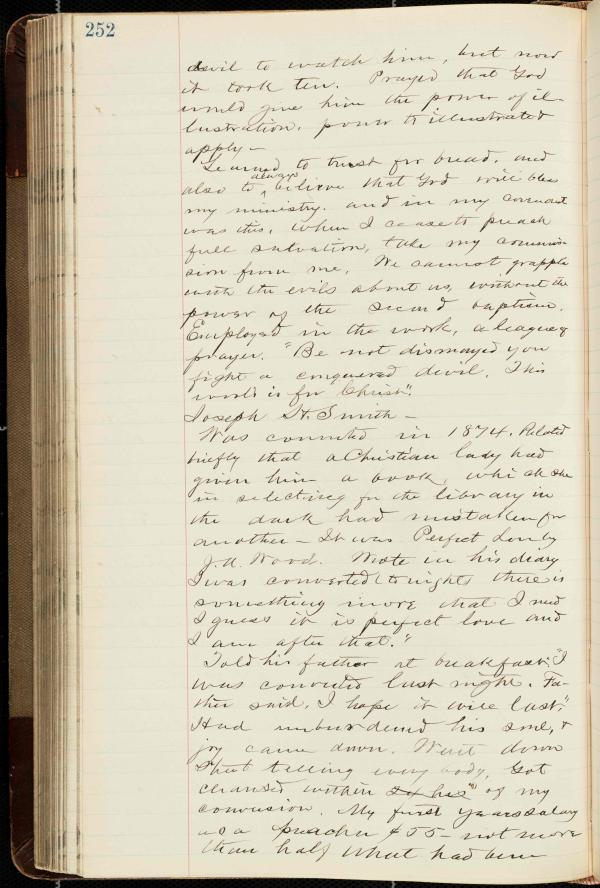 252
devil to watch him, but now
it took ten. Prayed that God
would give him the power of il-
lustration, power to illustrate &
apply -
Learned to trust for bread, and
also to always believe that God will bless
my ministry. and in my covenant
was this, when I cease to preach
full salvation, take my commis-
sion from me. We cannot grapple
with the evils about us, without the
power of the second baptism.
Employed in the work, a league of
prayer. "Be not dismayed you
fight a conquered devil. This
world is for Christ".
Joseph H. Smith -
Was converted in 1874. Related
briefly that a Christian lady had
given him a book, which she
in selecting for the library in
the dark had mistaken for
another - It was Perfect Love by
J. A. Wood. Wrote in his diary
I was converted tonight there is
something more that I need
I guess it is perfect love and
I am after that."
Told his father at breakfast: "I
was converted last night. Fa-
ther said, I hope it will last".
Had unburdened his soul, &
joy came down. Went down
Street telling every body. Got
cleansed within of my
conversion. My first years salary
as a preacher $55 - not more
than half what had been